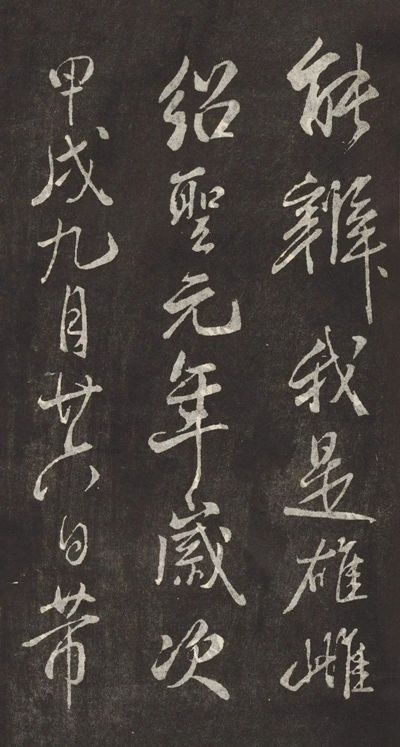 能辨我是雄雌
紹聖元年歲次
甲戌九月廿六日帶